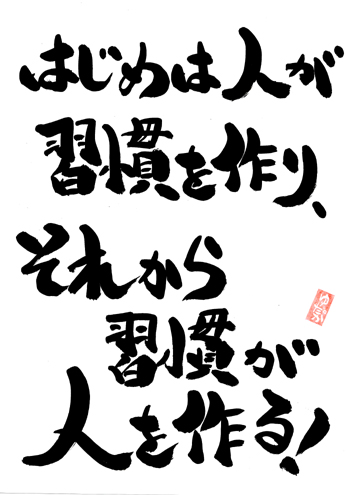 はじめは人が
習慣を作り、
それから
習慣が
人を作る!
ゆたか